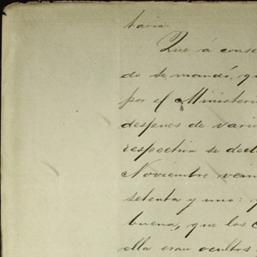 taria.
Que á conse
do se mandó, q
por el Ministeri
despues de vari
respectiva se decl
Noviembre vein
setenta y uno: y
buena, que las c
ella eran ocultos